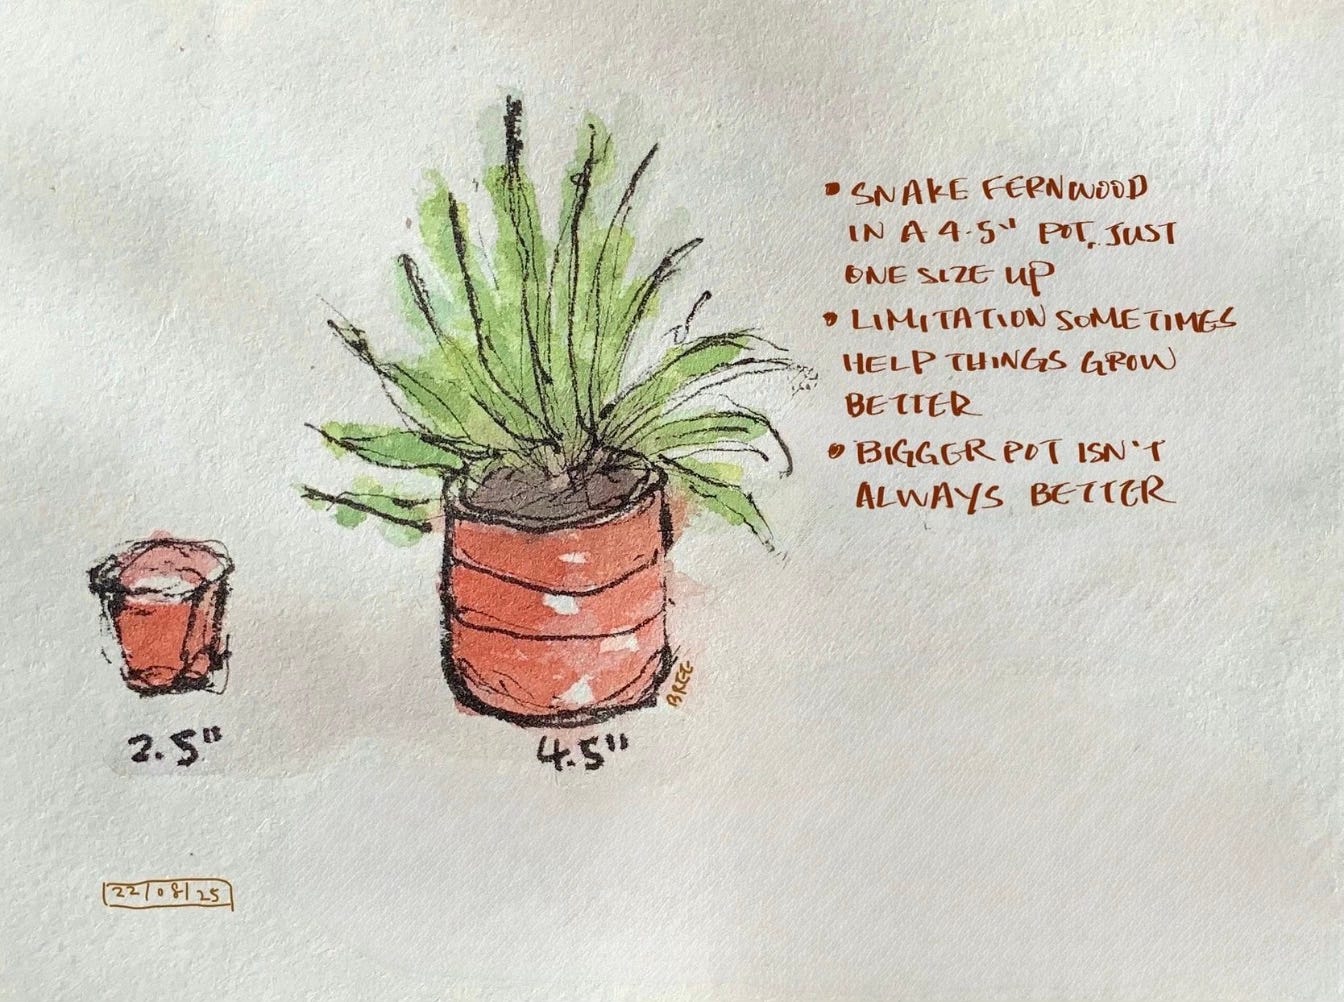 • SNAKE FERNWOOD
IN A 4.5" POT, JUST
ONE SIZE UP
• LIMITATION SOMETIMES
HELP THINGS GROW
BETTER
• BIGGER POT ISN'T
ALWAYS BETTER
BREE
2.5"
4.5"
22/08/25